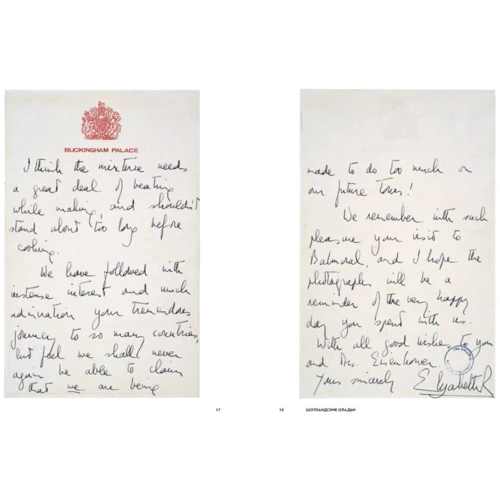 BUCKINGHAM PALACE
I think the mixture needs
a great deal of beating
while making, and shouldn't
stand about too long before
cooking.
We have followed with
intense interest and much
admiration your tremendous
journey to so many countries,
but feel we shall never
again be able to claim
that we are being
17
made to do too much on
our future tours!
We remember with such
pleasure your visit to
Balmoral, and I hope the
photographs will be a
reminder of the very happy
day you spent with us.
With all good wishes to you
and Mrs. Eisenhower
Yours sincerely
Elizabeth R
18 ШОТЛАНДСКИЕ ОЛАДЬИ